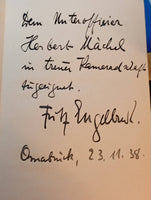 Dem Unteroffizier
Herbert Mächel
in treuer Kameradschaft
zugeeignet.
Fritz Engelbrecht.
Osnabrück, 23.11.38.